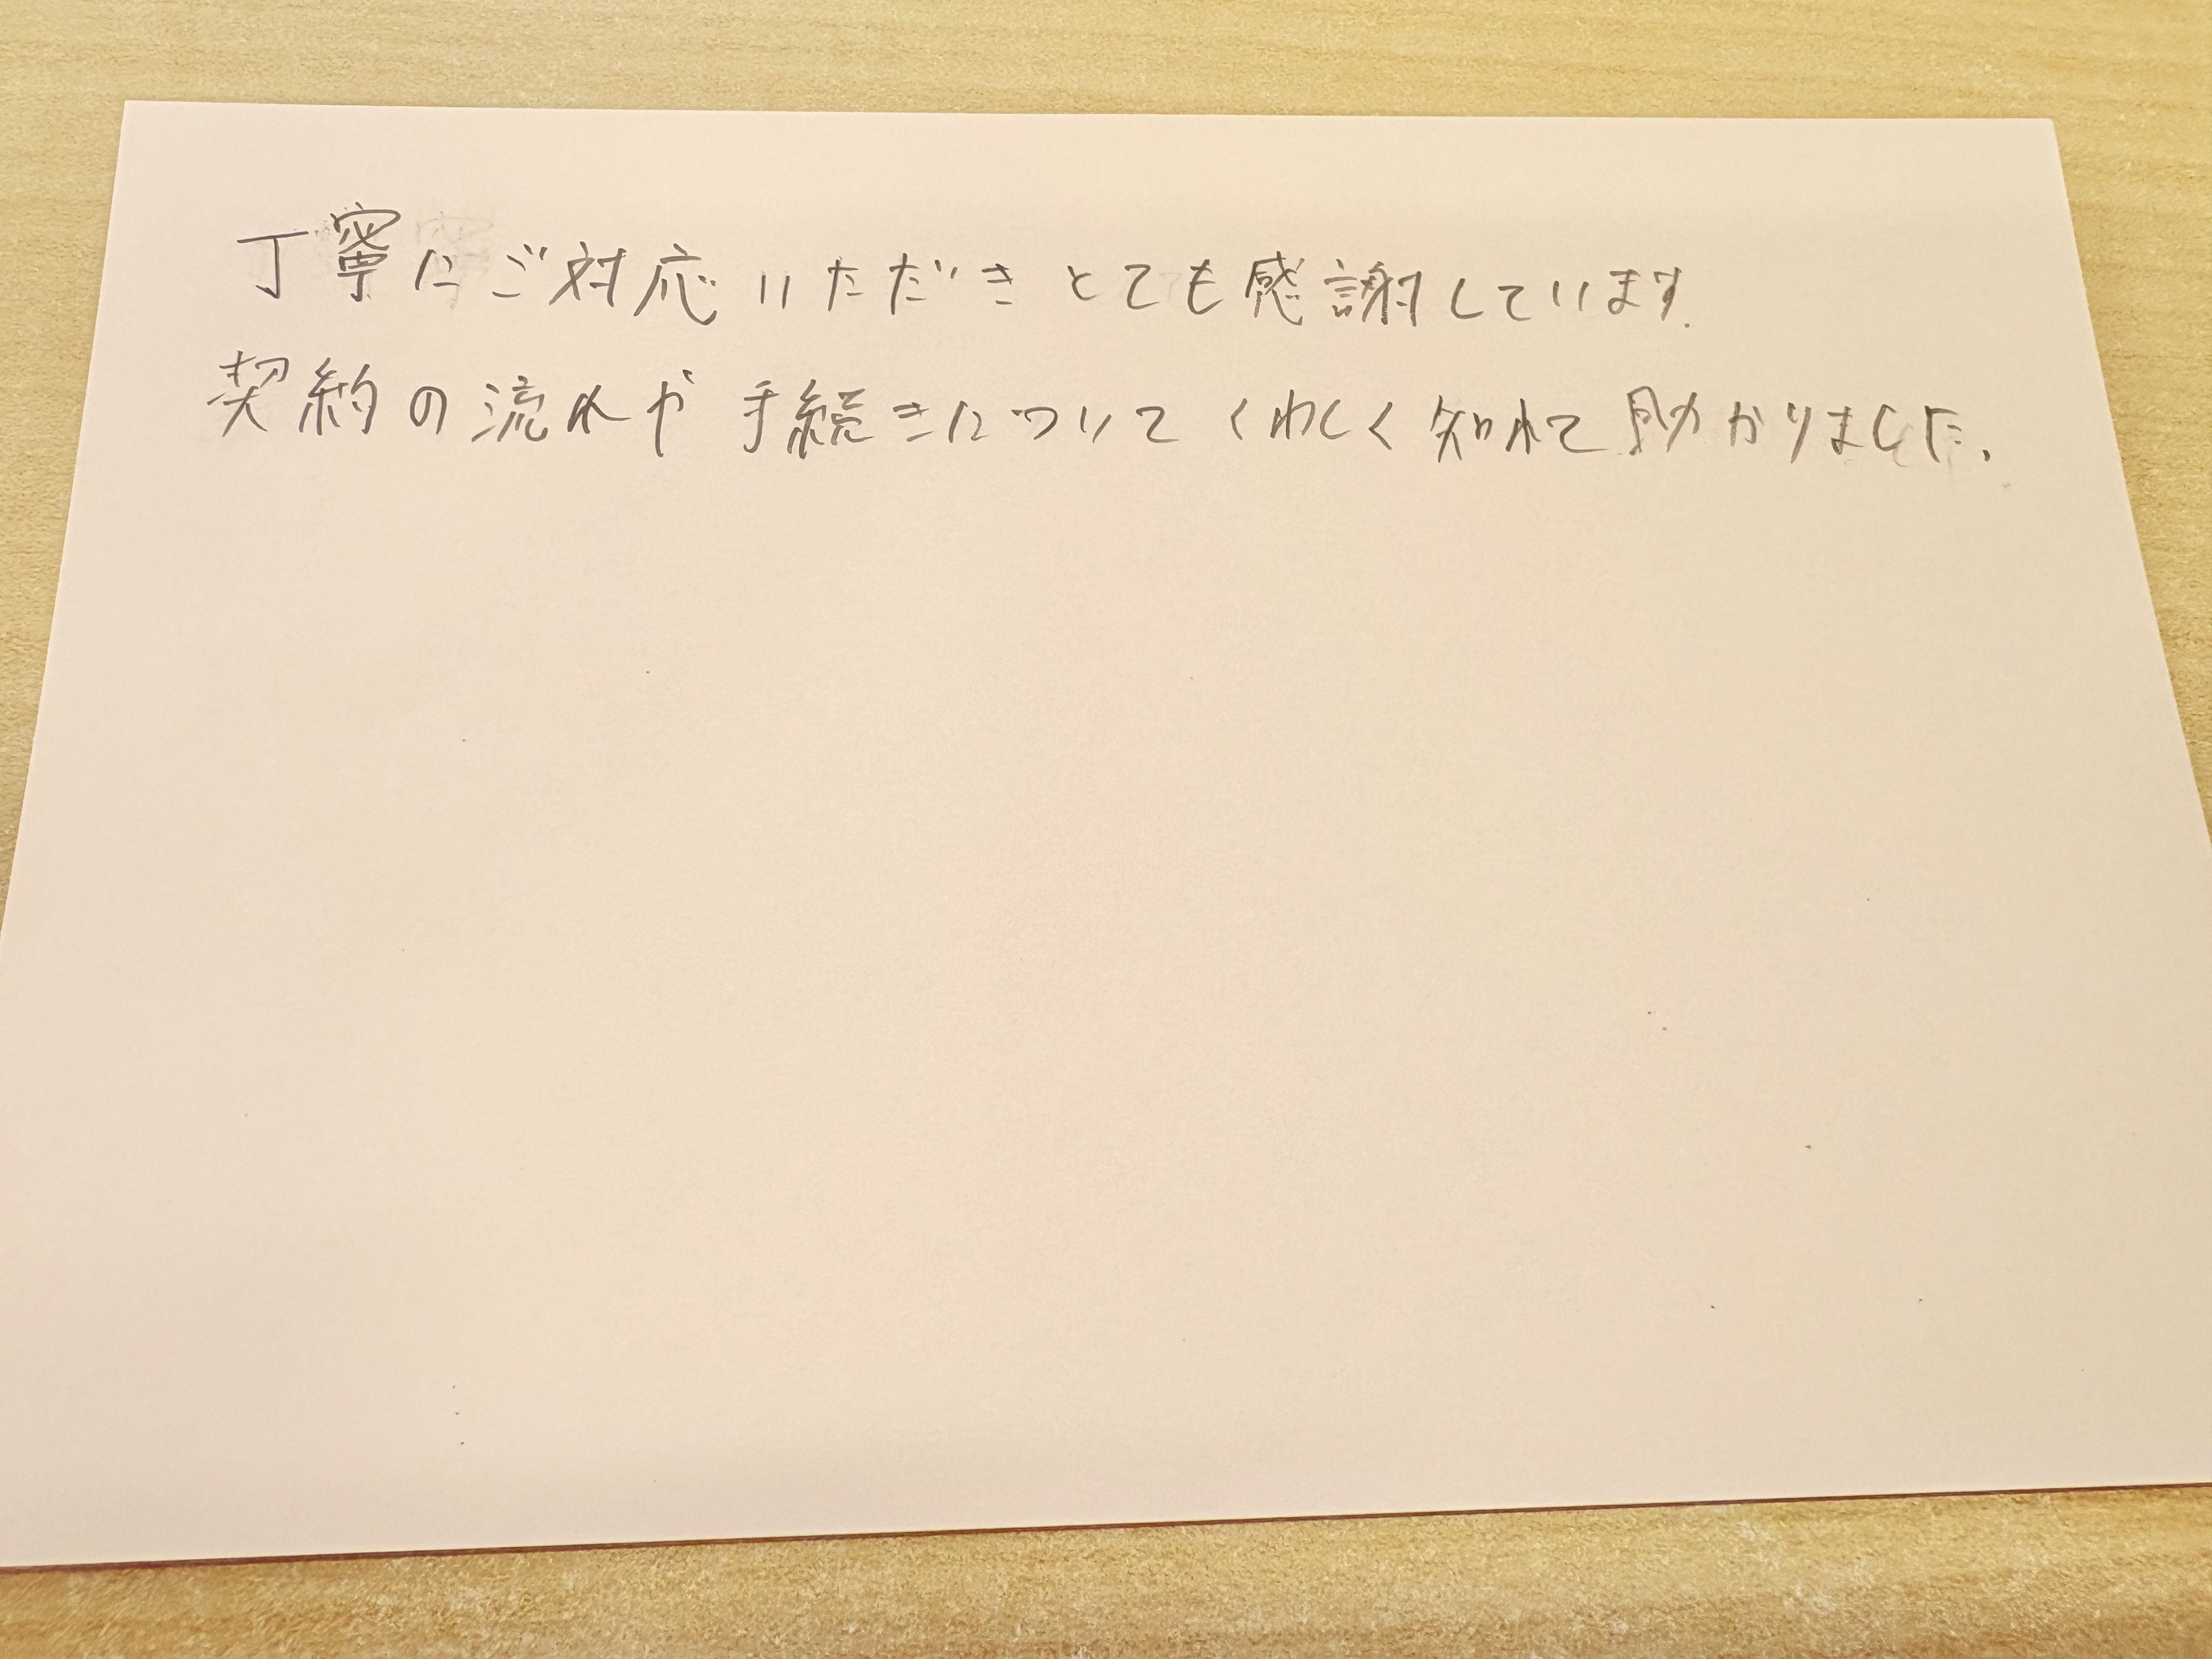 丁寧にご対応いただきとても感謝しています.
契約の流れや手続きについてくわしく知れて助かりました.